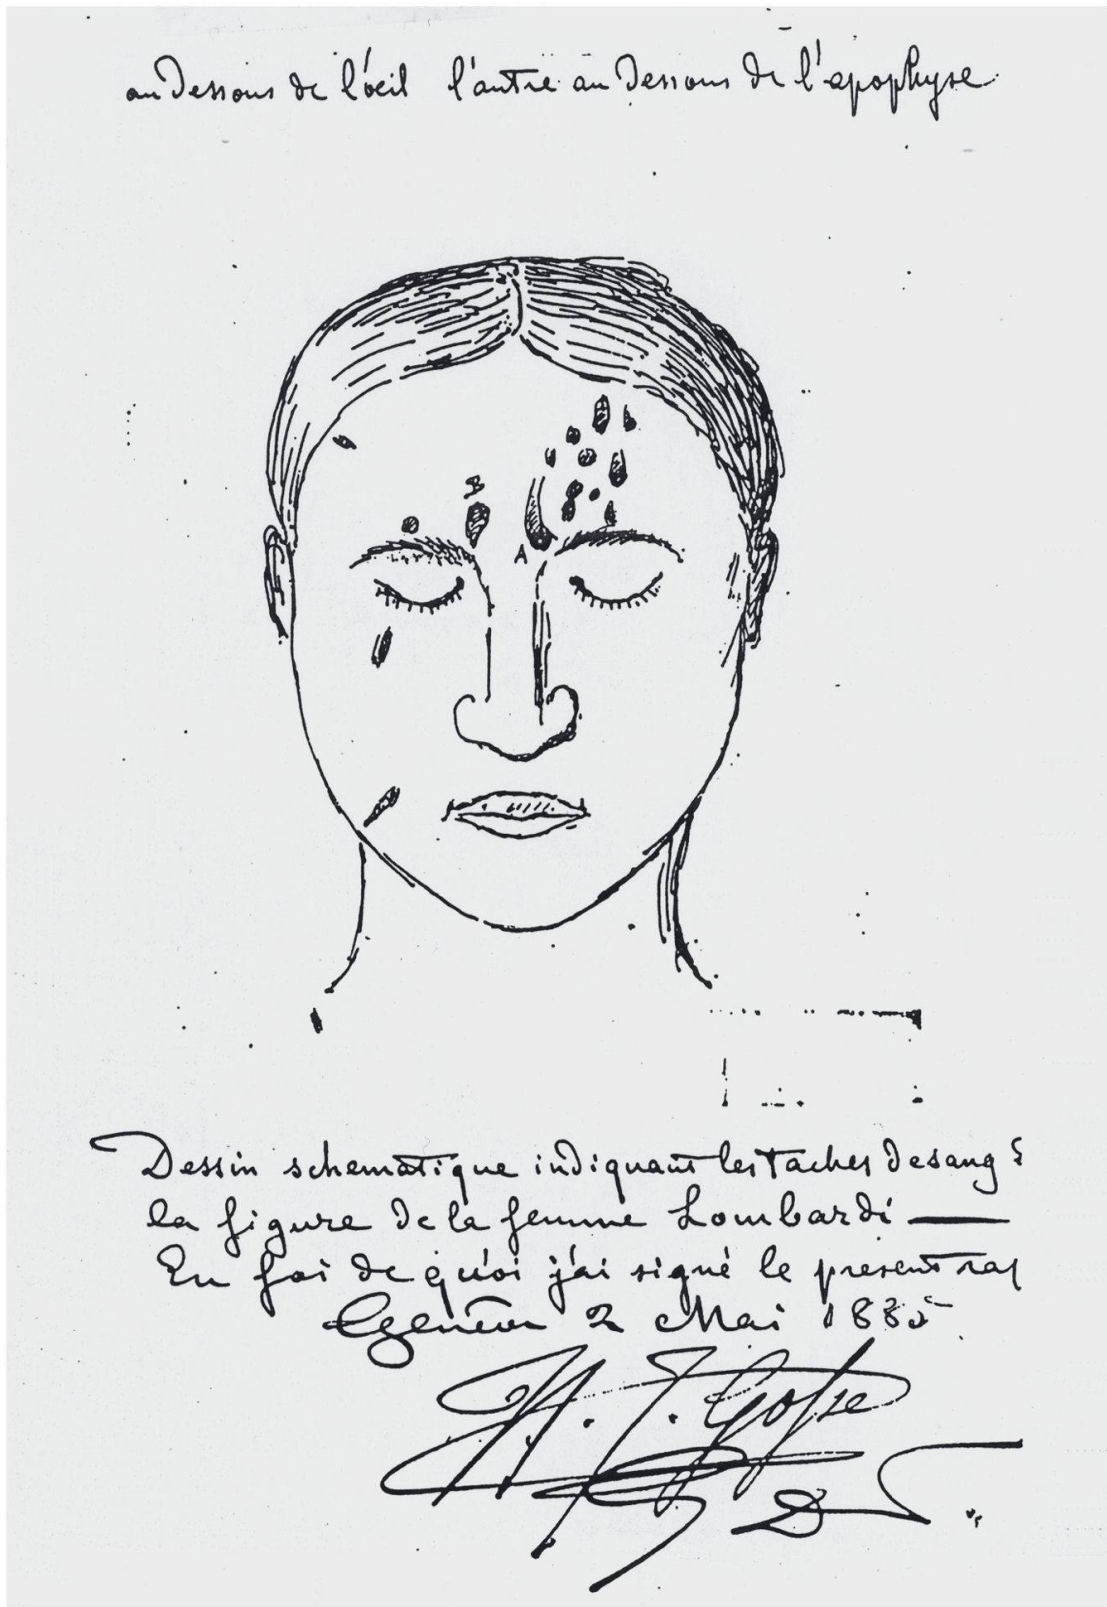 au dessous de l'œil l'autre au dessous de l'apophyse
B
A
Dessin schematique indiquant les taches de sang
la figure de la femme Lombardi —
En foi de quoi j'ai signé le present rap
Genève 2 Mai 1885
H. J. Gosse